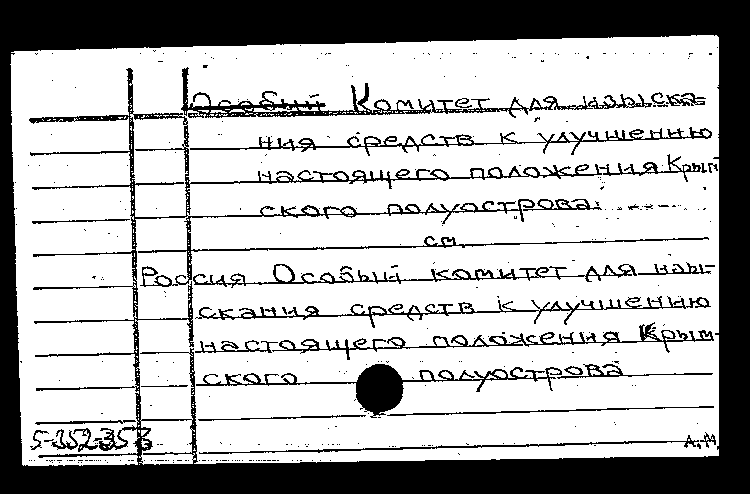 Особый Комитет для изыска-
ния средств к улучшению
настоящего положения Крым
ского полуострова.
см.
Россия Особый комитет для изы-
скания средств к улучшению
настоящего положения Крым-
ского полуострова
5-352-353
А.М.